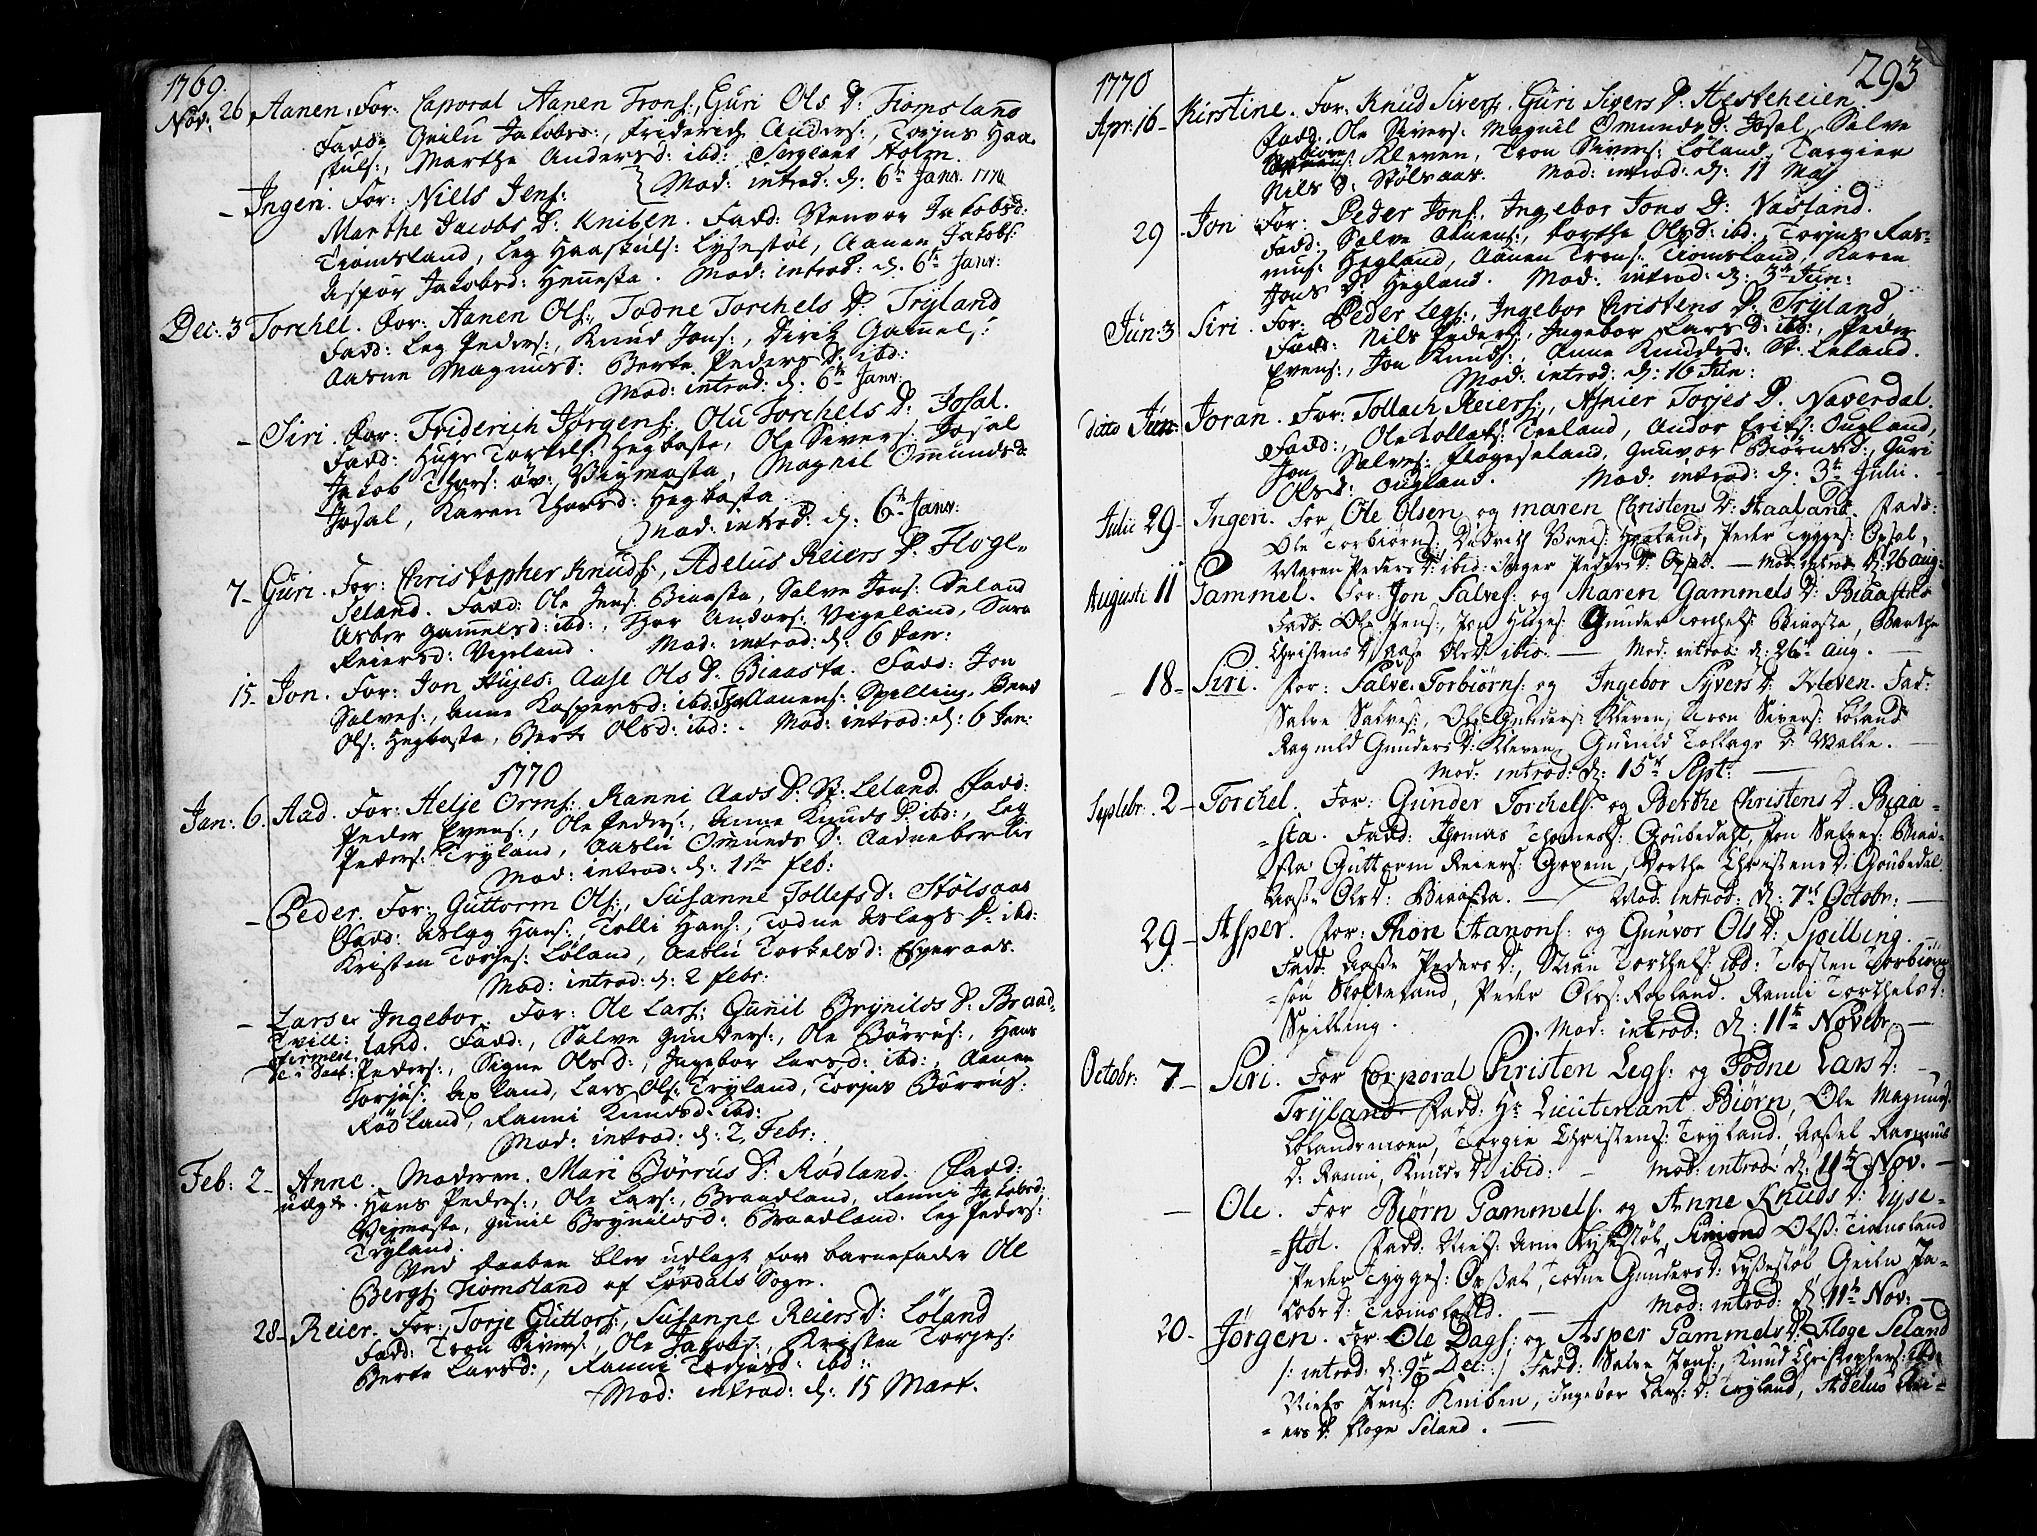 1769.
Nov: 26 Aanen. For: Caporal Aanen Trons:, Guri Ols D: Tiomsland
Fadd: Geilu Jakobs:, Friderich Anders:, Torjus Haa-
skuls:, Marthe Andersd: ibd: Sergeant Holm.
Mod: introd: d: 6te Janv: 1770
- Ingeri. For: Niels Jens:
Marthe Jacobs D: Kniben. Fadd: Stenvor Jakobsd:
Tiomsland, Leg Haaskuls: Lysestøl, Aanen Jakobs:
Aspor Jakobsd: Hennesta. Mod: introd: d: 6te Janv:
Dec: 3 Torchel. For: Aanen Ols:, Todne Torchels D: Tryland
Fadd: Leg Peders:, Knud Jons:, Dirik Gamels:
Aasne Magnusd: Berte Peders D: ibd:
Mod: introd: d: 6te Janv:
- Siri. For: Friderich Jørgens:, Olu Torchels D: Josal.
Fadd: Huge Torkels: Hegbosta, Ole Sivers: Josal
Jakob Thors: øv: Vigmosta, Magnil Omundsd:
Josal, Karen Thorsd: Hegbosta.
Mod: introd: d: 6te Janv:
7- Guri. For: Christopher Knuds:, Adelus Reiers D: Floge-
seland. Fadd: Ole Jens: Biaasta, Salve Jons: Seland
Asbor Gamelsd: ibd:, Thor Anders: Vigeland, Sara
Reiersd: Vigeland. Mod: introd: d: 6 Jan:
15- Jon. For: Jon Hujes: Aase Ols D: Biaasta. Fadd: Jon
Salves:, Anne Kaspersd: ibd: Thor Aanens: Spilling, Bend
Ols: Hegbosta, Berte Olsd: ibd: Mod: introd: d: 6 Jan:
1770
Jan: 6. Aad. For: Helje Orms:, Ranni Aads D: St. Leland. Fadd:
Peder Evens:, Ole Peders:, Anne Knuds D: ibd:, Leg
Peders: Tryland, Aaslu Omunds D: Aadneberter
Mod: introd: d: 1ste Feb:
- Peder. For: Guttorm Ols:, Susanne Tollefs D: Stølsaas
Fadd: Aslag Hans:, Tolli Hans:, Todne Aslags D: ibd:
Kristen Torjes: Løland, Aaslu Torkelsd: Esperaas.
Mod: introd: d: 2 Febr:
- Lars & Ingebor. For: Ole Lars: Gunnil Brynilds D: Braad-
Tvill:
land. Fadd:, Salve Gunders:, Ole Børrus:, Hans
Peders:, Signe Olsd:, Ingebor Larsd: ibd:, Aanen
Torjus: Opland, Lars Ols: Tryland, Torjus Børrus:
Rødland, Ranni Knudsd: ibd:
Mod: introd: d: 2, Febr:
Feb: 2- Anne. Moderen. Mari Børrus D: Rødland. Fadd:
uægte. Hans Peders:, Ole Lars:, Braadland, Ranni Jakobsd:
Vigmosta, Gunil Brynildsd: Braadland. Leg Peders:
Tryland.
Ved Daaben blev udlagt for barnefader Ole
Bergs: Tiomsland af Løvdals Sogn.
28- Reier. For: Torje Guttors:, Susanne Reiers D: Løland
Fadd: Tron Sivers:, Ole Jakobs:, Kristen Torjes:
Berte Larsd:, Ranni Torjusd: ibd:
Mod: introd: d: 15 Mart.
1770
293
Apr: 16- Kirstine. For: Knud Sivers: Guri Sivers D: Hesteheien.
Fadd: Ole Sivers: Magnil Omunds D: Josal, Salve
Biørn
Kleven, Tron Sivers: Løland, Torgier
Nils D: Stølsaas. Mod: introd: d: 11 Maj
29 - Jon For: Peder Jons:, Ingebor Jons D: Vasland.
Fadd: Salve Atnens:, Dorthe Olsd: ibd:, Torjus Ras-
mus: Hegland, Aanen Trons: Tiomsland, Karen
Jons D: Hegland. Mod: introd: d: 3de Jun:
Jun: 3 Siri. For: Peder Legs:, Ingebor Christens D: Tryland
Fadd: Nils Peders:, Ingebor Lars D: ibd:, Peder
Evens:, Jon Knuds:, Anne Knudsd: St: Leland.
Mod: introd: d: 16 Jun:
ditto Jun: Joran. For: Tollach Reiers:, Asnier Torjes D: Naverdal.
Fadd:, Ole Tollaks: Treland, Andor Eriks: Ougland,
Jon Salves: Flogeseland, Gunvor Biørnsd:, Guri
Olsd: Ougland. Mod: introd: d: 3te Julii.
Julii 29- Ingeri. For Ole Olsen og Maren Christens D: Haaland. Fadd:
Ole Torbiørns: Didrich Vrens: Haaland, Peder Tygges: Opsal,
Maren Peders D: ibid: Inger Peders D: Opsal. - Mod: introd: d: 26 aug:
Augusti 11 Gammel. For: Jon Salves: og Maren Gammels D: Biaasta
Fadd: Ole Jens:, Jon Huges: Gunder Torchels: Biaasta, Berthe
Christens D: Aase Ols D: ibid. - Mod: introd: d: 26te Aug. -
- 18- Siri. For: Salve Torbiørns: og Ingebor Syvers D: Kleven. Fad:
Salve Salves:, Ole Gunders: Kleven, Tron Sivers: Løland
Ragnild Gunders D: Kleven, Gunild Tollags D: Valle. -
Mod: introd: d: 15de Sept: -
Septebr. 2- Torchel. For: Gunder Torchels: og Berthe Christens D: Biaa-
-sta. Fadd: Thomas Thomess: Goubedall, Jon Salves: Biaa-
-sta Guttorm Reiers: Gopem, Dorthe Christens D: Goubedal
Aase Ols D: Biaasta. - Mod. introd: d: 7de Octobr: -
29- Asper. For: Thore Aanons: og Gunvor Ols D: Spilling. -
Fadd: Aase Peders D:, Stien Torchels: ibd: Tosten Torbiørn
-søn Skofteland, Peder Ols: Ropland. Ranni Torchels D:
Spilling. Mod: introd: d: 11te Novebr. -
Octobr: 7- Siri. For Corporal Christen Legs: og Todne Lars D: -
Tryland Fadd: Hr Lieutenant Biørn, Ole Magnus:
Lølandsmoen, Torgie Christens: Tryland. Aassel Rasmus
D: Ranni Knuds D: ibid: - Mod: introd: d: 11te Nov. -
- Ole. For Biørn Gammels: og Anne Knuds D: Lyse-
-støl. Fadd: Niels Arne Lysestøl, Simond Olss: Tiomsland
Peder Tygges: Opsal, Todne Gunders D: Lysestøl Geilu Ja-
cobs D: Tiomsland. - Mod: introd: d: 11te Nov: -
20- Jørgen. For: Ole Dags: og Asper Gammels D: Floge Seland
/: introd: d: 9de Dec: :/ Fadd: Salve Jens:, Knud Christophers: ibd:
Niels Jens: Kniben, Ingebor Lars: D: Tryland, Adelus Rei-
-ers D: Floge Seland. -